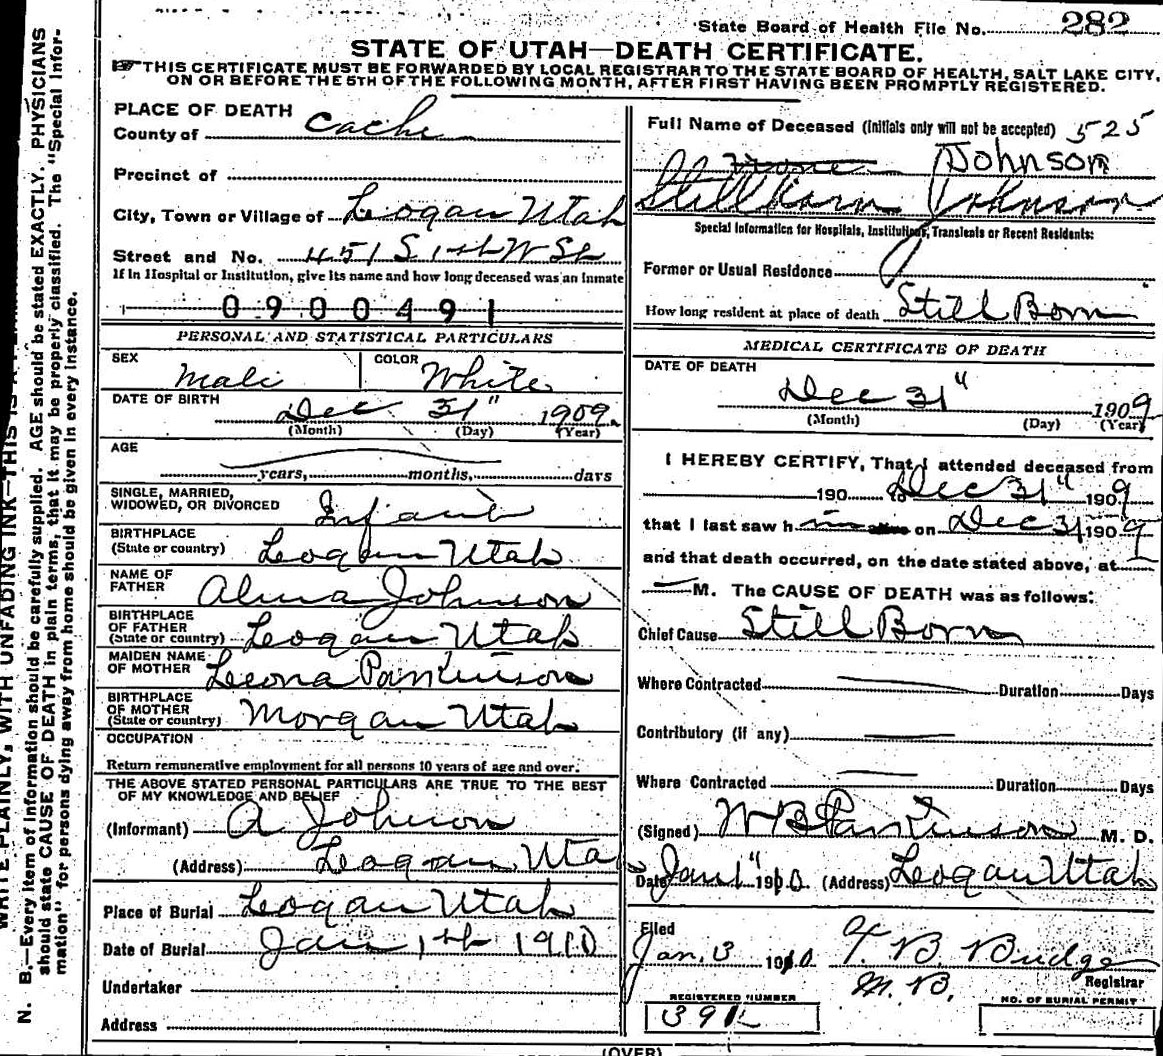 State Board of Health File No. 282
STATE OF UTAH—DEATH CERTIFICATE.
THIS CERTIFICATE MUST BE FORWARDED BY LOCAL REGISTRAR TO THE STATE BOARD OF HEALTH, SALT LAKE CITY,
ON OR BEFORE THE 5TH OF THE FOLLOWING MONTH, AFTER FIRST HAVING BEEN PROMPTLY REGISTERED.
PLACE OF DEATH
County of Cache
Precinct of
City, Town or Village of Logan Utah
Street and No. 451 S 1st W St
If in Hospital or Institution, give its name and how long deceased was an inmate
0900491
PERSONAL AND STATISTICAL PARTICULARS
SEX Male COLOR White
DATE OF BIRTH Dec 31" 1909
(Month) (Day) (Year)
AGE
years, months, days
SINGLE, MARRIED,
WIDOWED, OR DIVORCED Infant
BIRTHPLACE
(State or country) Logan Utah
NAME OF
FATHER Alma Johnson
BIRTHPLACE
OF FATHER
(State or country) Logan Utah
MAIDEN NAME
OF MOTHER Leona Parkinson
BIRTHPLACE
OF MOTHER
(State or country) Morgan Utah
OCCUPATION
Return remunerative employment for all persons 10 years of age and over.
THE ABOVE STATED PERSONAL PARTICULARS ARE TRUE TO THE BEST
OF MY KNOWLEDGE AND BELIEF
(Informant) A Johnson
(Address) Logan Uta
Place of Burial Logan Utah
Date of Burial Jan 1st 1910
Undertaker
Address
Full Name of Deceased (Initials only will not be accepted) 525
None Johnson
Stillborn Johnson
Special Information for Hospitals, Institutions, Transients or Recent Residents:
Former or Usual Residence
How long resident at place of death Still Born
MEDICAL CERTIFICATE OF DEATH
DATE OF DEATH
Dec 31" 1909
(Month) (Day) (Year)
I HEREBY CERTIFY, That I attended deceased from
190 Dec 31" 1909
that I last saw him alive on Dec 31 1909
and that death occurred, on the date stated above, at
M. The CAUSE OF DEATH was as follows:
Chief Cause Still Born
Where Contracted Duration Days
Contributory (if any)
Where Contracted Duration Days
(Signed) W B Parkinson M. D.
Date Jan 1" 1910. (Address) Logan Utah
Filed
Jan. 3 1910 T. B. Budge
M. D. Registrar
REGISTERED NUMBER
NO. OF BURIAL PERMIT
(OVER)
N. B.—Every item of information should be carefully supplied. AGE should be stated EXACTLY. PHYSICIANS
should state CAUSE OF DEATH in plain terms, that it may be properly classified. The "Special Infor-
mation" for persons dying away from home should be given in every instance.
WRITE PLAINLY, WITH UNFADING INK—THIS IS A